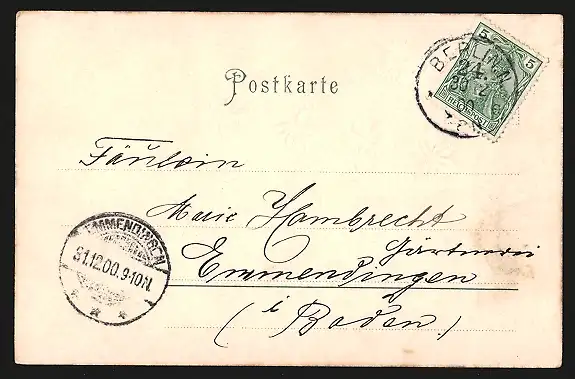 5 5
BERLIN.N.
24.
30 12
00
REICHSPOST
Postkarte
Fräulein
Marie Hambrecht
Gärtnerei
Emmendingen
(i Baden.)
EMMENDINGEN
31.12.00.9-10N.
* * *